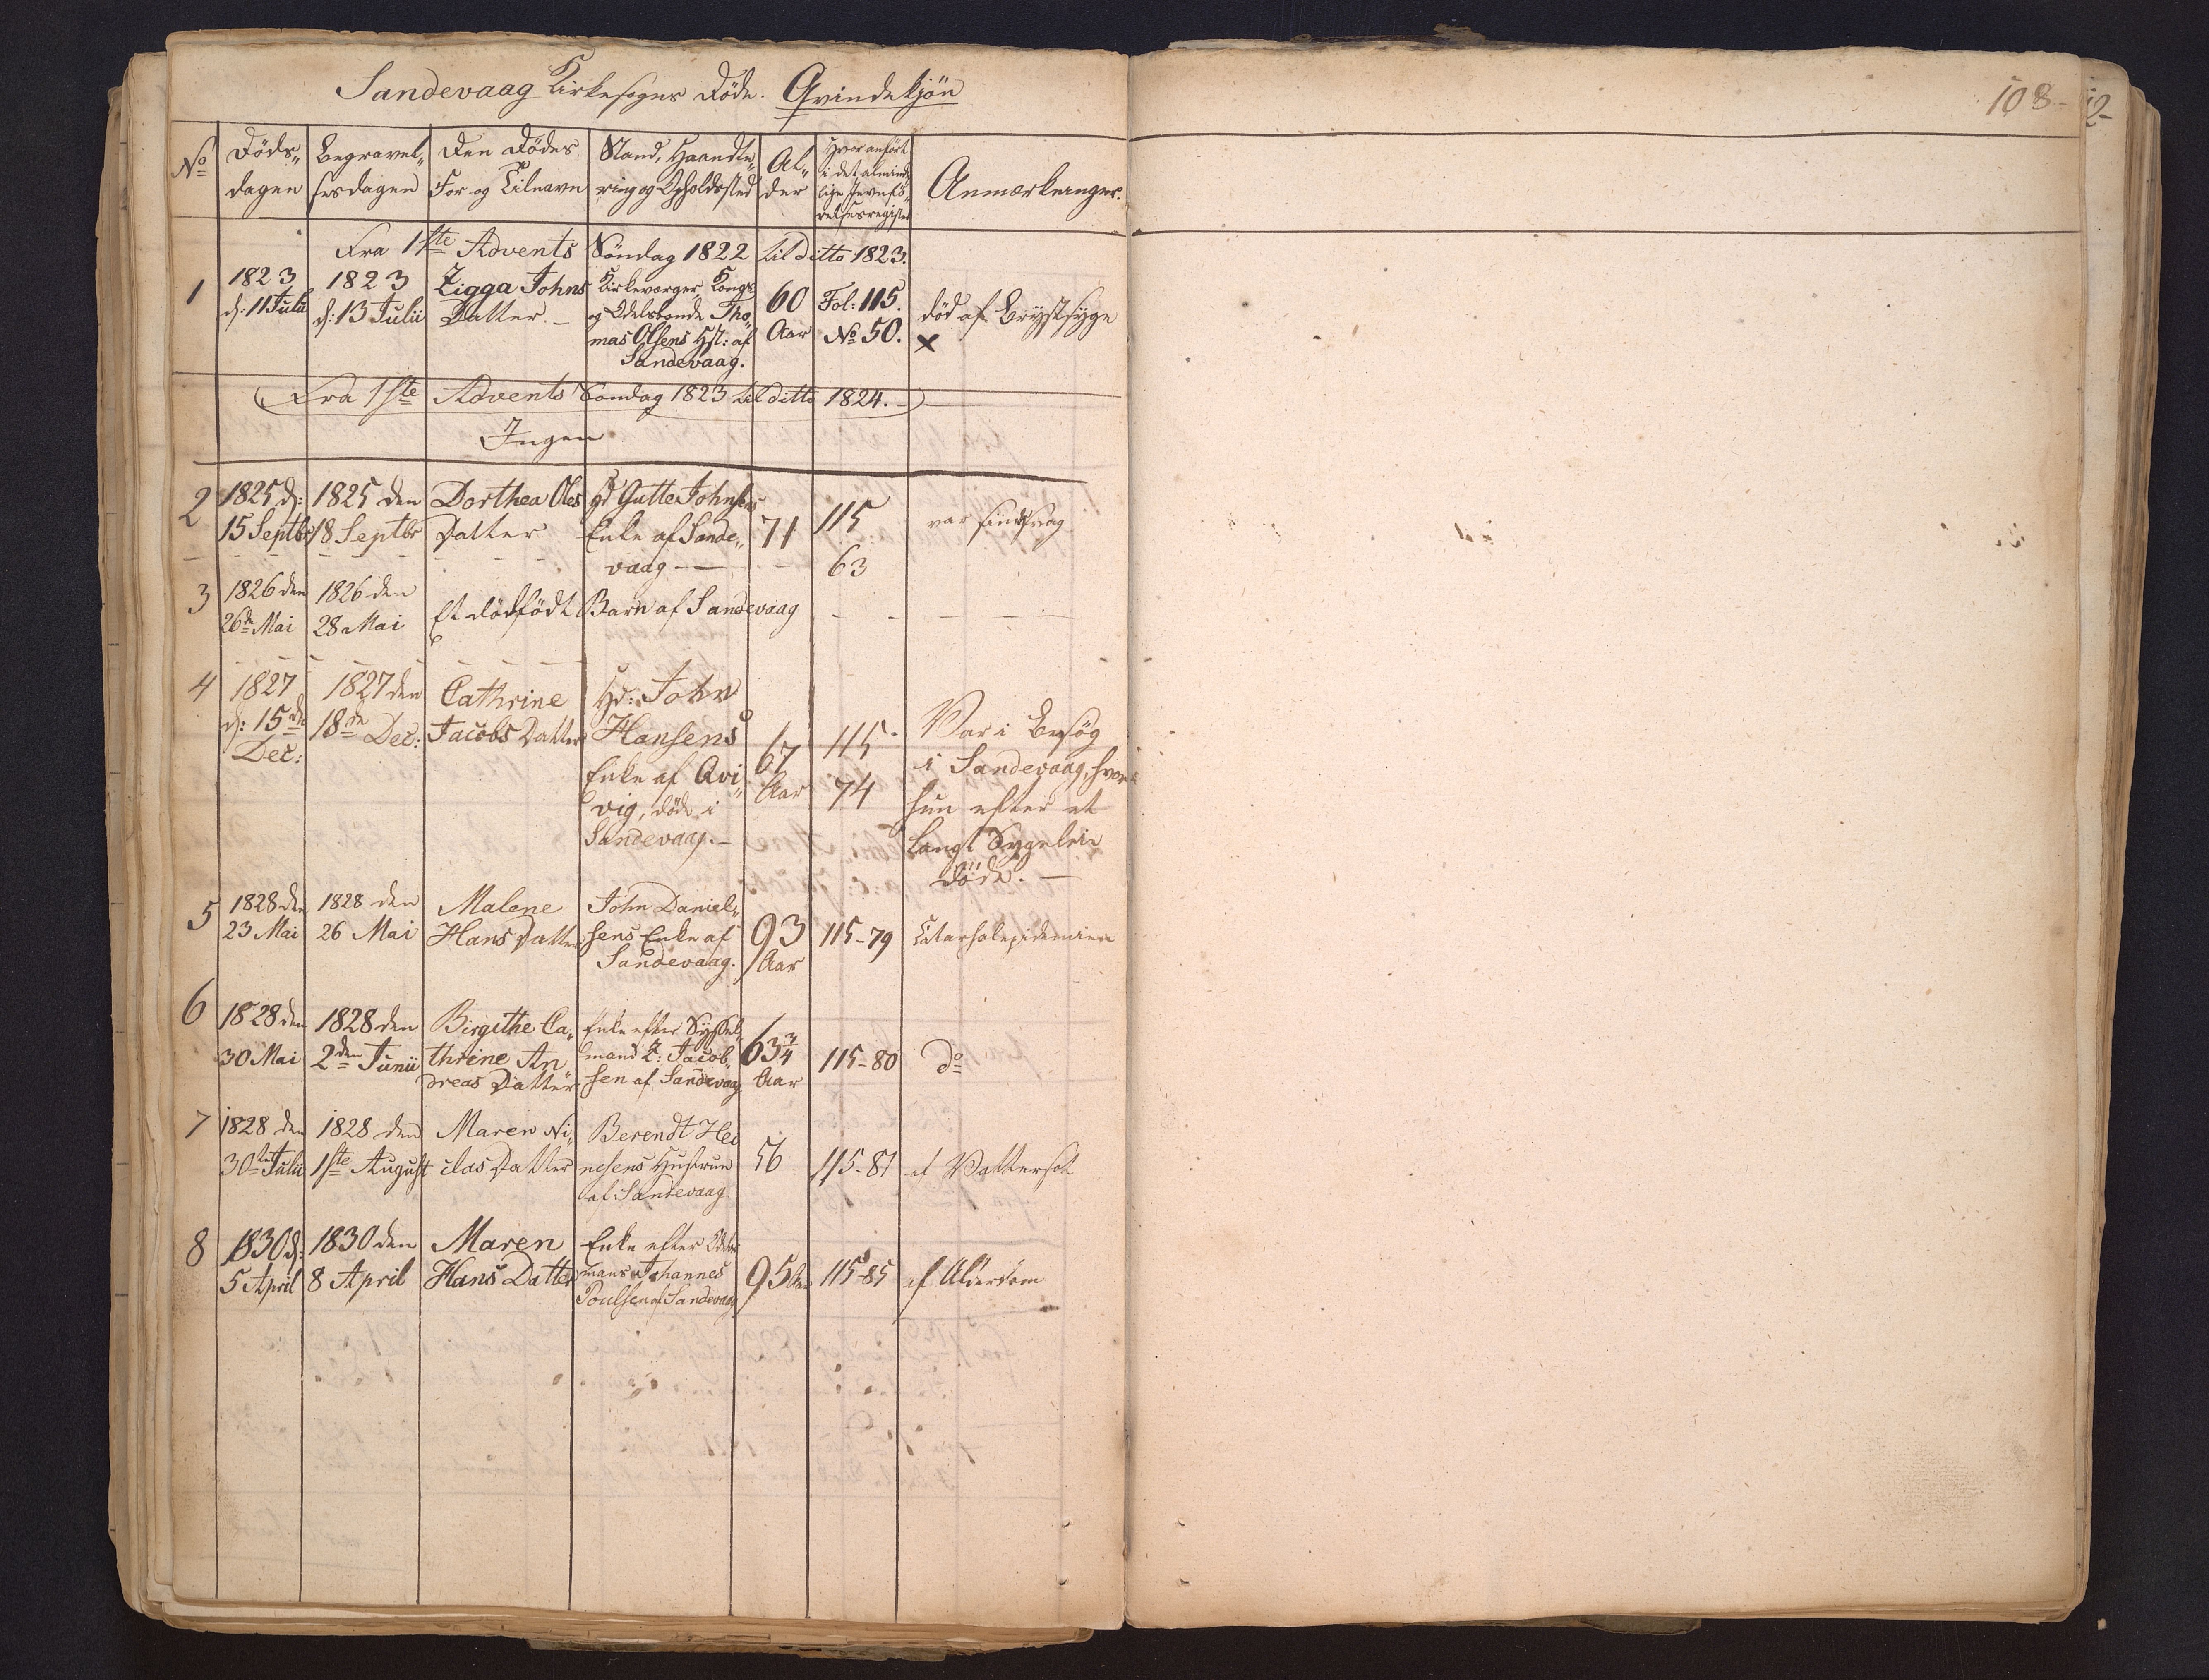 Sandevaag Kirkesogns Døde. Qvindekjøn
108
No
Døds- dagen
Begravel- sesdagen
Den Dødes For og Tilnavn
Stand, Haandte- ring og Opholdssted
Al- der
Hvor anført i det almindelige Jevnfø- relsesregister
Anmærkninger.
Fra 1ste Advents Søndag 1822 til ditto 1823.
1
1823
d: 11 Julii
1823
d: 13 Julii
Zigga Johns
Datter. –
Kirkeværger, Kongs
og Odelsbonde Tho-
mas Olsens Hst: af
Sandevaag.
60
Aar
Fol: 115.
No 50.
død af Brystsyge
x
Fra 1ste Advents Søndag 1823 til ditto 1824. –
Ingen
2
1825 d:
15 Septbr
1825 den
18 Septbr
Dorthea Oles
Datter
Gutte Johnsens
Enke af Sande-
vaag –
71
115
63
var sindsvag
3
1826 den
26de Mai
1826 den
28 Mai
Et dødfødt Barn af Sandevaag
4
1827
d: 15de
Dec:
1827 den
18de Dec:
Cathrine
Jacobs Datter
John
Hansens
Enke af Qvi-
vig, døde i
Sandevaag. –
67
Aar
115
74
Var i Besøg
i Sandevaag, hvor
hun efter et
langt Sygeleie
døde. –
5
1828 den
23 Mai
1828 den
26 Mai
Malene
Hans Datter
John Daniel-
sens Enke af
Sandevaag.
93
Aar
115-79
Catarhalepidemien
6
1828 den
30 Mai
1828 den
2den Junii
Birgithe Ca-
thrine An
dreas Datter
Enke efter Syssel-
mand Z: Jacob-
sen af Sandevaag
63 3/4
Aar
115-80
do
7
1828 den
30te Julii
1828 den
1ste August
Maren Ni-
clas Datter
Berendt Hei
nesens Hustrue
af Sandevaag
56
115-81
af Vattersot
8
1830 d:
5 April
1830 den
8 April
Maren
Hans Datter
Enke efter
Johannes
Poulsen af Sandevaag
95 Aar
115-85
af Alderdom